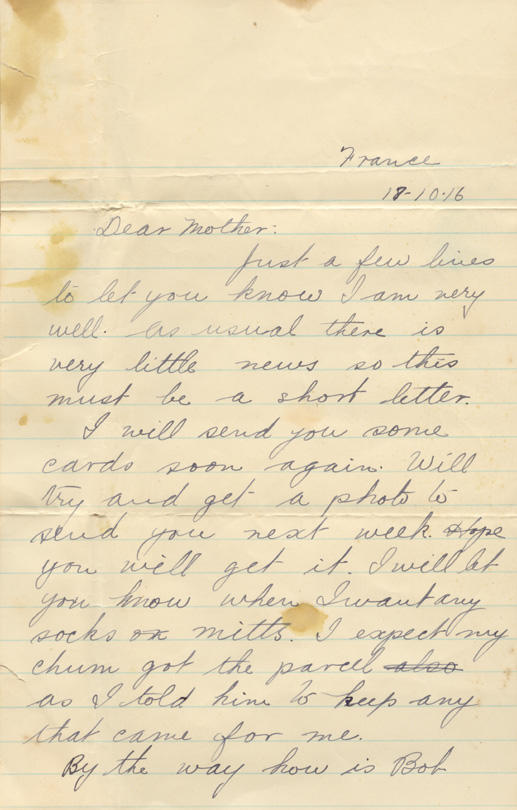 France
18-10-16
Dear Mother:
Just a few lines
to let you know I am very
well. As usual there is
very little news so this
must be a short letter.
I will send you some
cards soon again. Will
try and get a photo to
send you next week. Hope
you will get it. I will let
you know when I want any
socks or mitts. I expect my
chum got the parcel also
as I told him to keep any
that came for me.
By the way how is Bob